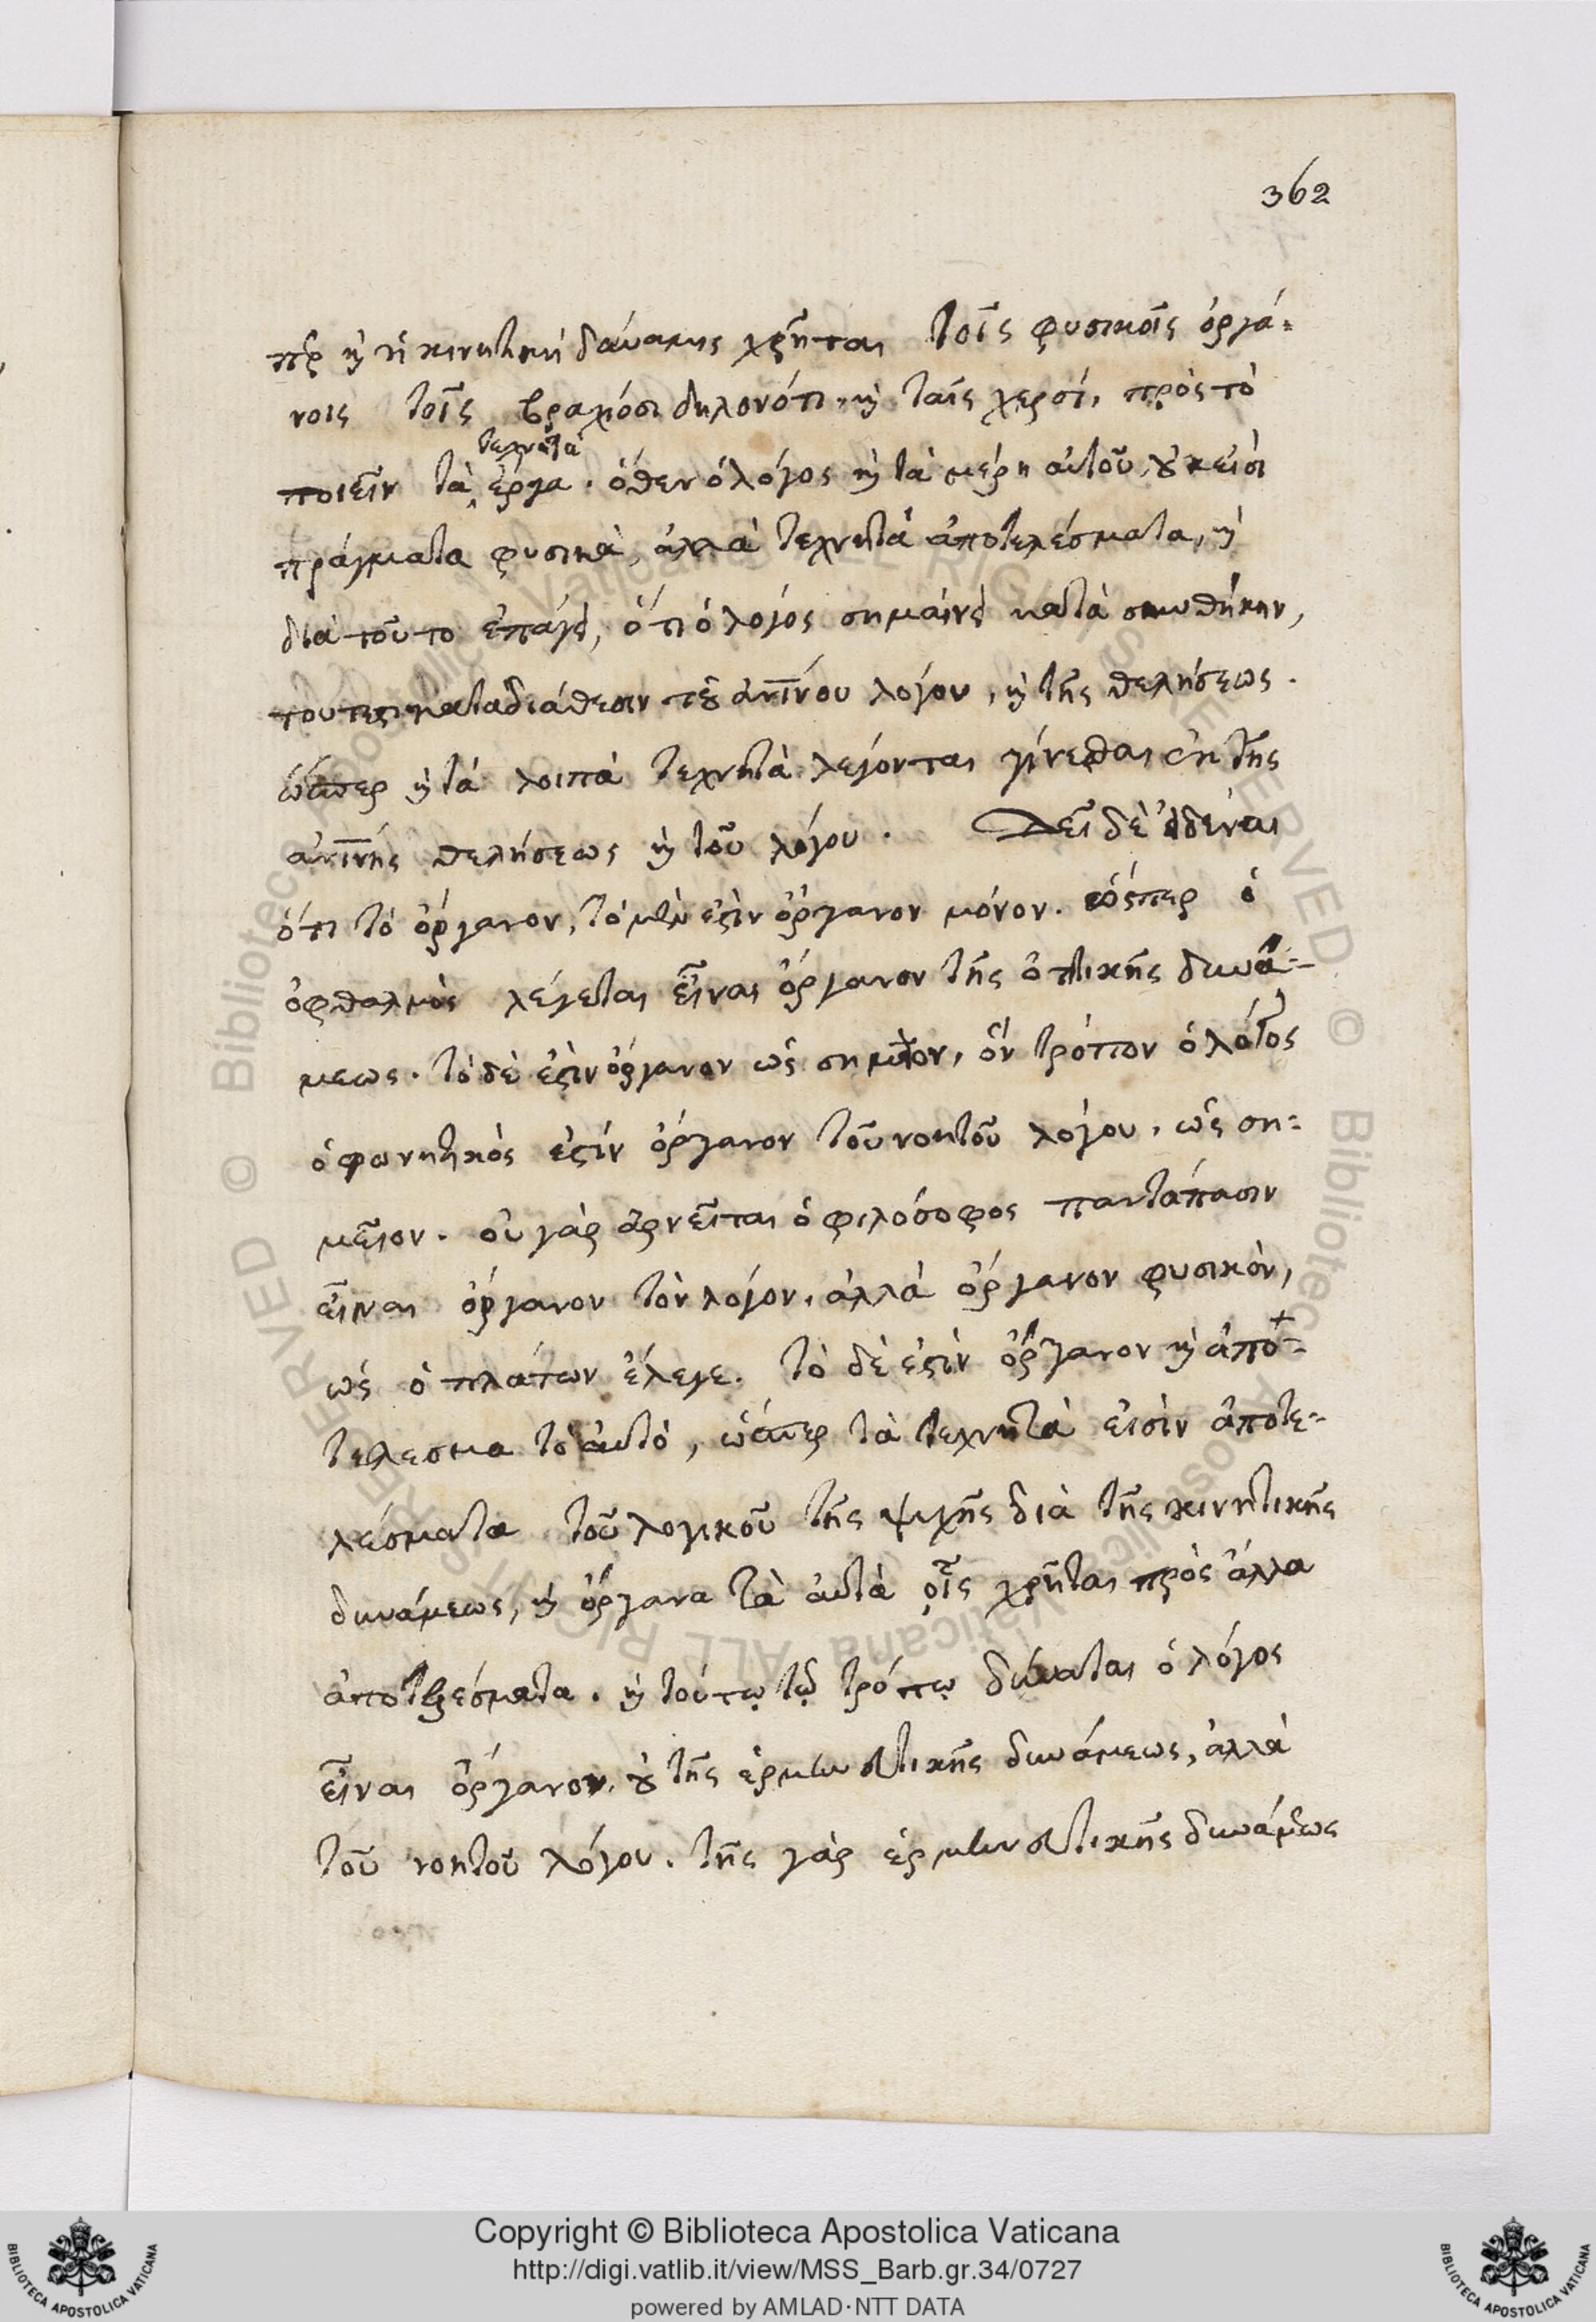 362
περ καὶ ἡ κινητικὴ δύναμις χρῆται τοῖς φυσικοῖς ὀργά-
νοις τοῖς βραχίοσι δηλονότι καὶ ταῖς χερσί, πρὸς τὸ
τεχνητὰ
ποιεῖν τὰ ἔργα. ὅθεν ὁ λόγος καὶ τὰ μέρη αὐτοῦ, οὔκ εἰσι
πράγματα φυσικὰ, ἀλλὰ τεχνητὰ ἀποτελέσματα, καὶ
διὰ τοῦτο ἐπάγει, ὅτι ὁ λόγος σημαίνει κατὰ συνθήκην,
τουτέστι κατὰ διάθεσιν τοῦ ἀνθρωπίνου λόγου, καὶ τῆς θελήσεως.
ὥσπερ καὶ τὰ λοιπὰ τεχνητὰ λέγονται γίνεσθαι ἐκ τῆς
ἀνθρωπίνης θελήσεως καὶ τοῦ λόγου. Δεῖ δὲ εἰδέναι
ὅτι τὸ ὄργανον, τὸ μὲν ἐστὶν ὄργανον μόνον. ὥσπερ ὁ
ὀφθαλμὸς λέγεται εἶναι ὄργανον τῆς ὀπτικῆς δυνά-
μεως. τὸ δὲ ἐστὶν ὄργανον ὡς σημεῖον, ὃν τρόπον ὁ λόγος
ὁ φωνητικὸς ἐστὶν ὄργανον τοῦ νοητοῦ λόγου, ὡς ση-
μεῖον. οὐ γὰρ ἀρνεῖται ὁ φιλόσοφος παντάπασιν
εἶναι ὄργανον τὸν λόγον, ἀλλὰ ὄργανον φυσικὸν,
ὡς ὁ πλάτων ἔλεγε. τὸ δὲ ἐστὶν ὄργανον καὶ ἀπο-
τέλεσμα τὸ αὐτὸ, ὥσπερ τὰ τεχνητὰ εἰσὶν ἀποτε-
λέσματα τοῦ λογικοῦ τῆς ψυχῆς διὰ τῆς κινητικῆς
δυνάμεως, καὶ ὄργανα τὰ αὐτὰ οἷς χρῆται πρὸς ἄλλα
ἀποτελέσματα. καὶ τούτῳ τῷ τρόπῳ δύναται ὁ λόγος
εἶναι ὄργανον. οὐ τῆς ἑρμηνευτικῆς δυνάμεως, ἀλλὰ
τοῦ νοητοῦ λόγου. τῆς γὰρ ἑρμηνευτικῆς δυνάμεως
Copyright © Biblioteca Apostolica Vaticana
http://digi.vatlib.it/view/MSS_Barb.gr.34/0727
powered by AMLAD·NTT DATA